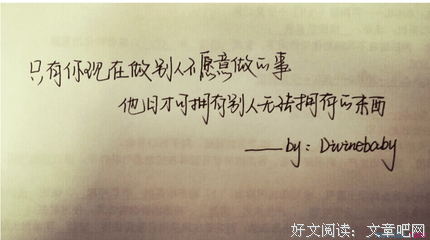 只有你现在做别人不愿意做的事
他日才可拥有别人无法拥有的东西
——by：Divinebaby
好文阅读：文章吧网